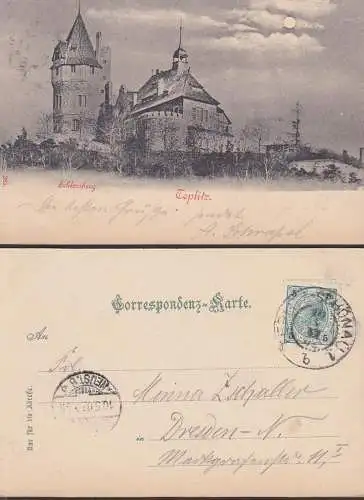 Schlossberg
Teplitz.
Die besten Grüsse sendet
Correspondenz-Karte.
An
Frl.
Minna Zschaller
in
Dresden-N.
Markgrafenstr.
Nur für die Adresse.